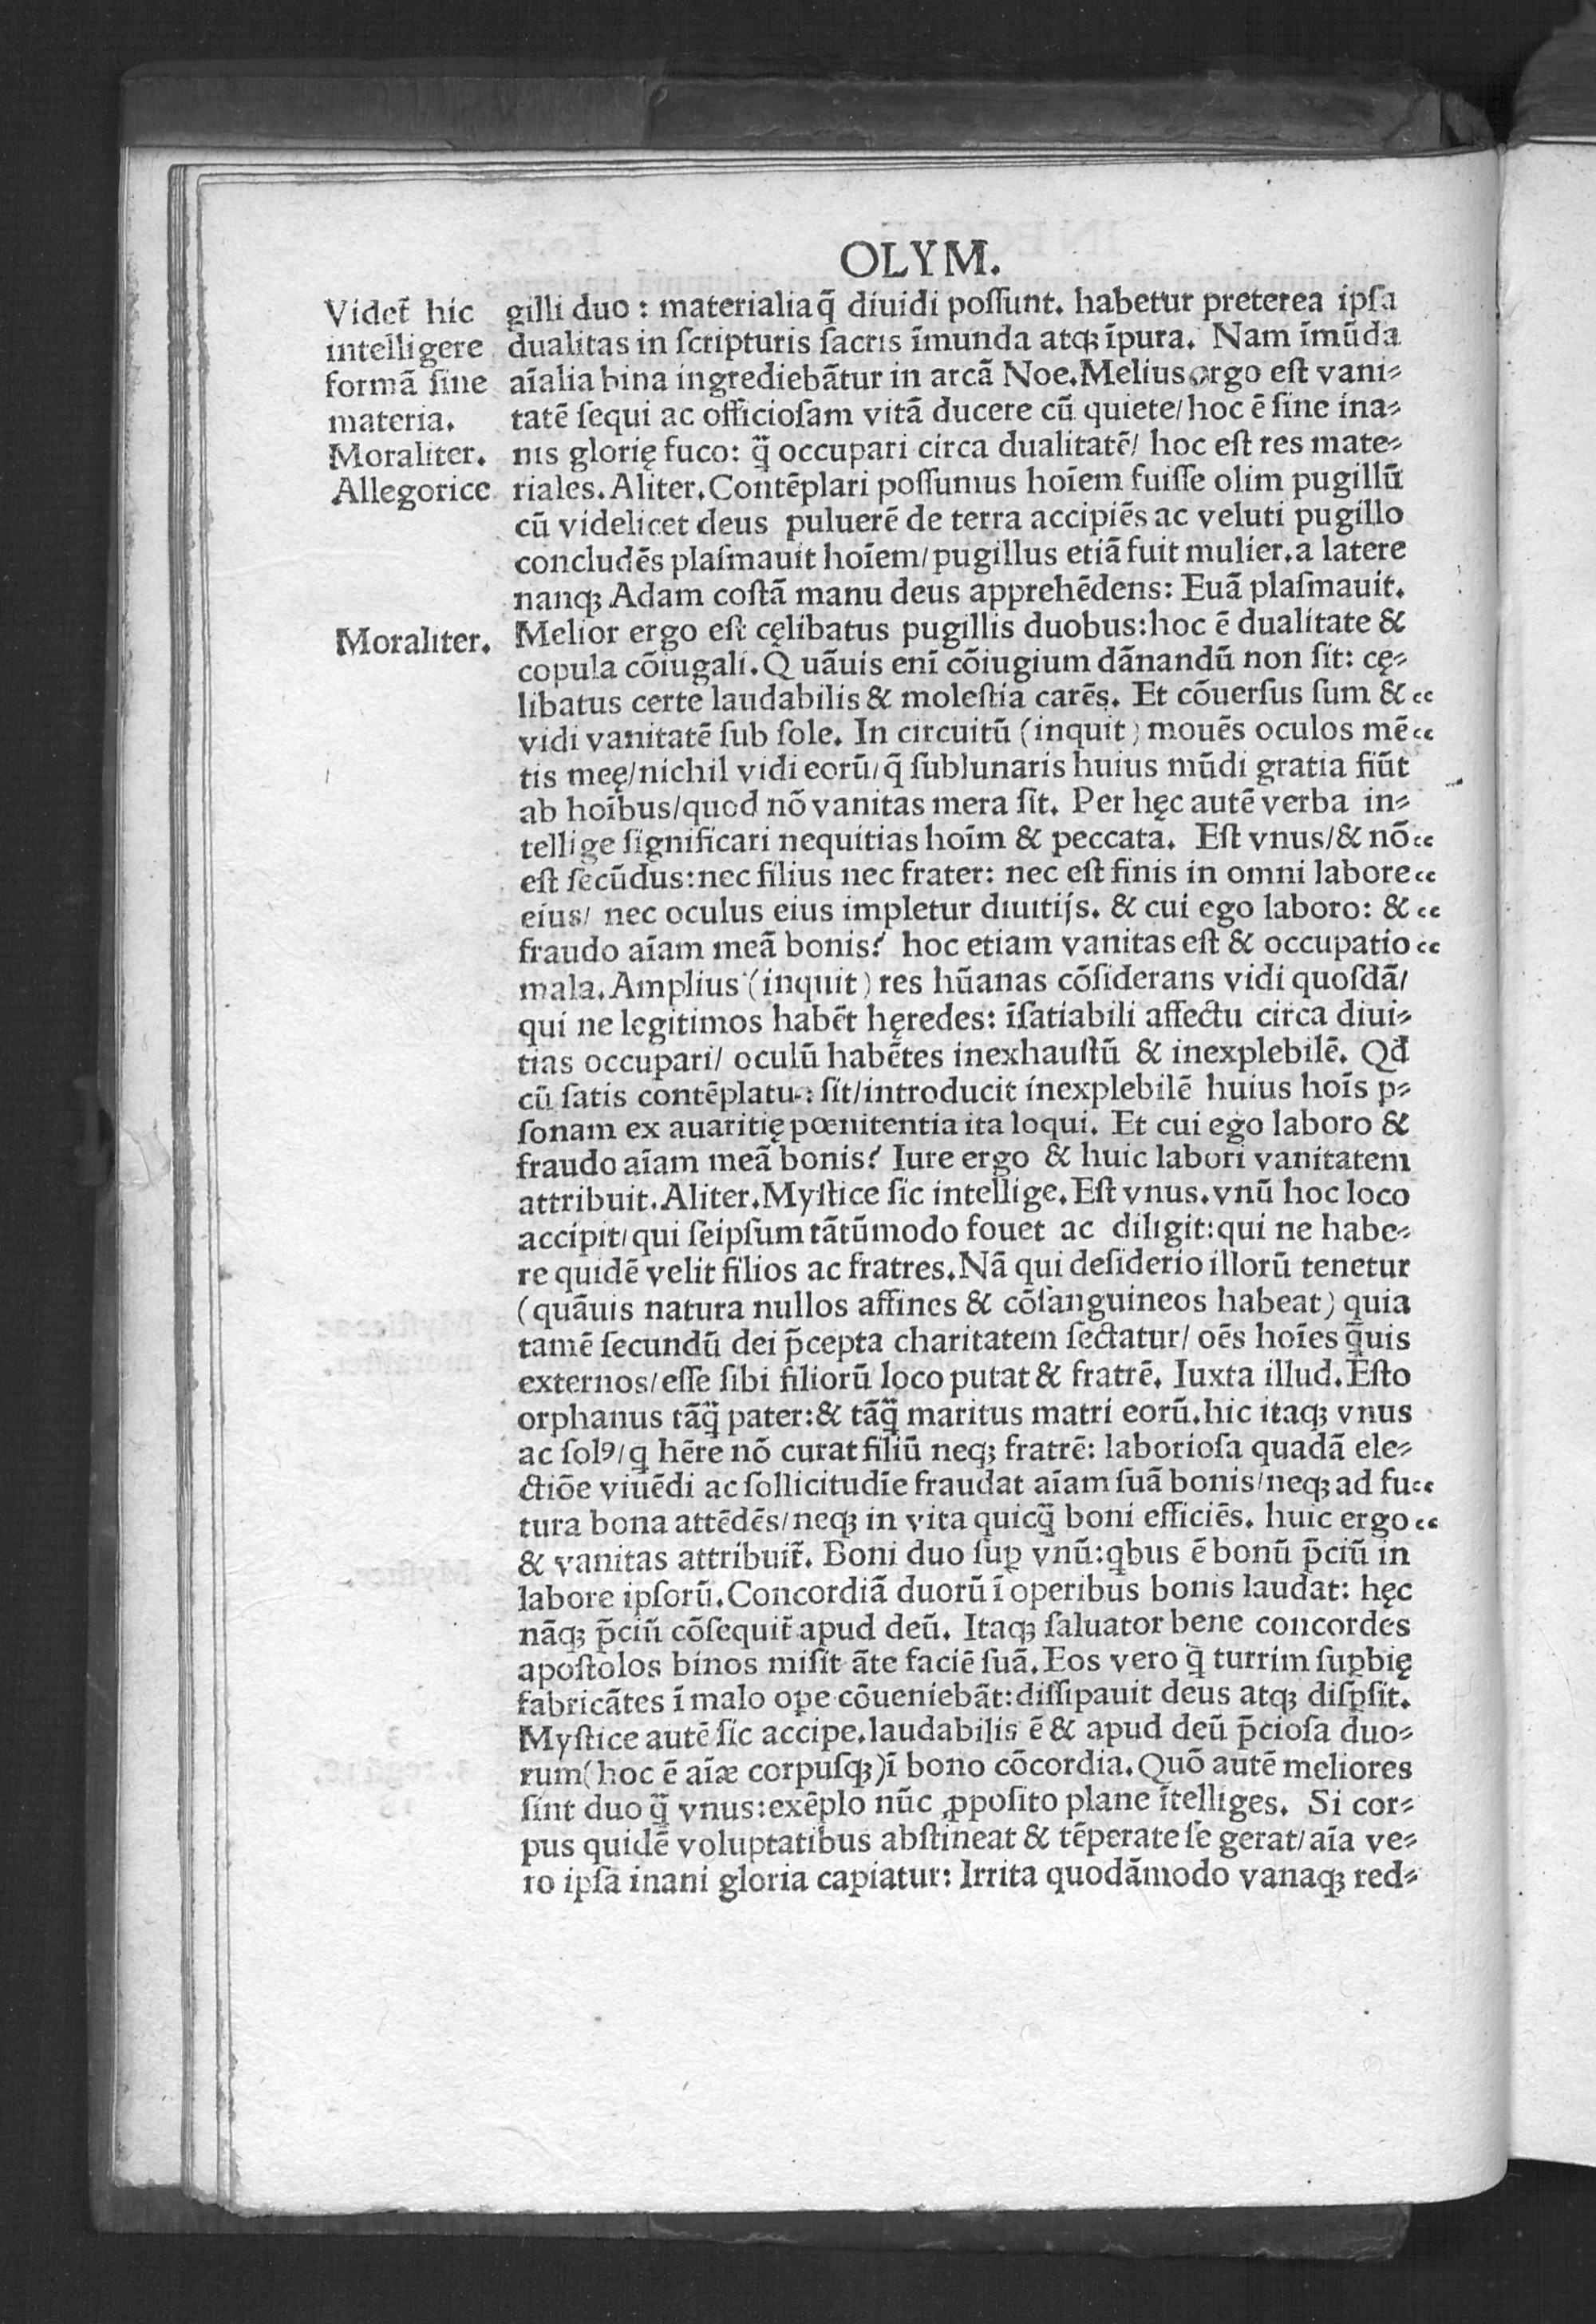 OLYM.
Videt̃ hic
intelligere
formã ſine
materia.
Moraliter.
Allegorice
Moraliter.
gilli duo : materialiaq̃ diuidi poſſunt. habetur preterea ipſa
dualitas in ſcripturis ſacris ĩmunda atqꝫ ĩpura. Nam ĩmũda
aĩalia bina ingrediebãtur in arcã Noe. Melius ergo eſt vani⸗
tatẽ ſequi ac officioſam vitã ducere cũ quiete/ hoc ẽ ſine ina⸗
nis glorię fuco: q̃ occupari circa dualitatẽ/ hoc eſt res mate⸗
riales. Aliter. Contẽplari poſſumus hoĩem fuiſſe olim pugillũ
cũ videlicet deus puluerẽ de terra accipiẽs ac veluti pugillo
concludẽs plaſmauit hoĩem/ pugillus etiã fuit mulier. a latere
nanqꝫ Adam coſtã manu deus apprehẽdens: Euã plaſmauit.
Melior ergo eſt cęlibatus pugillis duobus: hoc ẽ dualitate &
copula cõiugali. Quãuis enĩ cõiugium dãnandũ non ſit: cę⸗
libatus certe laudabilis & moleſtia carẽs. Et cõuerſus ſum & “
vidi vanitatẽ ſub ſole. In circuitũ (inquit) mouẽs oculos mẽ “
tis meę/ nichil vidi eorũ/ q̃ ſublunaris huius mũdi gratia fiũt
ab hoĩbus/ quod nõ vanitas mera ſit. Per hęc autẽ verba in⸗
tellige ſignificari nequitias hoĩm & peccata. Eſt vnus/ & nõ “
eſt ſecũdus: nec filius nec frater: nec eſt finis in omni labore “
eius/ nec oculus eius impletur diuitijs. & cui ego laboro: & “
fraudo aĩam meã bonis? hoc etiam vanitas eſt & occupatio “
mala. Amplius (inquit) res hũanas cõſiderans vidi quoſdã/
qui ne legitimos habẽt hęredes: ĩſatiabili affectu circa diui⸗
tias occupari/ oculũ habẽtes inexhauſtũ & inexplebilẽ. Qđ
cũ ſatis contẽplatus ſit/ introducit inexplebilẽ huius hoĩs ꝑ⸗
ſonam ex auaritię pœnitentia ita loqui. Et cui ego laboro &
fraudo aĩam meã bonis? Iure ergo & huic labori vanitatem
attribuit. Aliter. Myſtice ſic intellige. Eſt vnus. vnũ hoc loco
accipit/ qui ſeipſum tãtũmodo fouet ac diligit: qui ne habe⸗
re quidẽ velit filios ac fratres. Nã qui deſiderio illorũ tenetur
(quãuis natura nullos affines & cõſanguineos habeat) quia
tamẽ ſecundũ dei p̃cepta charitatem ſectatur/ oẽs hoĩes q̃uis
externos/ eſſe ſibi filiorũ loco putat & fratrẽ. Iuxta illud. Eſto
orphanus tãq̃ pater: & tãq̃ maritus matri eorũ. hic itaqꝫ vnus
ac ſolꝰ/ q hẽre nõ curat filiũ neqꝫ fratrẽ: laborioſa quadã ele⸗
ctiõe viuẽdi ac ſollicitudĩe fraudat aĩam ſuã bonis/ neqꝫ ad fu “
tura bona attẽdẽs/ neqꝫ in vita quicq̃ boni efficiẽs. huic ergo “
& vanitas attribuit̃. Boni duo ſuꝑ vnũ: qbus ẽ bonũ p̃ciũ in
labore ipſorũ. Concordiã duorũ ĩ operibus bonis laudat: hęc
nãqꝫ p̃ciũ cõſequit̃ apud deũ. Itaqꝫ ſaluator bene concordes
apoſtolos binos miſit ãte faciẽ ſuã. Eos vero q̃ turrim ſuꝑbię
fabricãtes ĩ malo oꝑe cõueniebãt: diſſipauit deus atqꝫ diſꝑſit.
Myſtice autẽ ſic accipe. laudabilis ẽ & apud deũ p̃cioſa duo⸗
rum (hoc ẽ aĩæ corpuſqꝫ) ĩ bono cõcordia. Quõ autẽ meliores
ſint duo q̃ vnus: exẽplo nũc ꝓpoſito plane ĩtelliges. Si cor⸗
pus quidẽ voluptatibus abſtineat & tẽperate ſe gerat/ aĩa ve⸗
ro ipſa inani gloria capiatur: Irrita quodãmodo vanaqꝫ red⸗